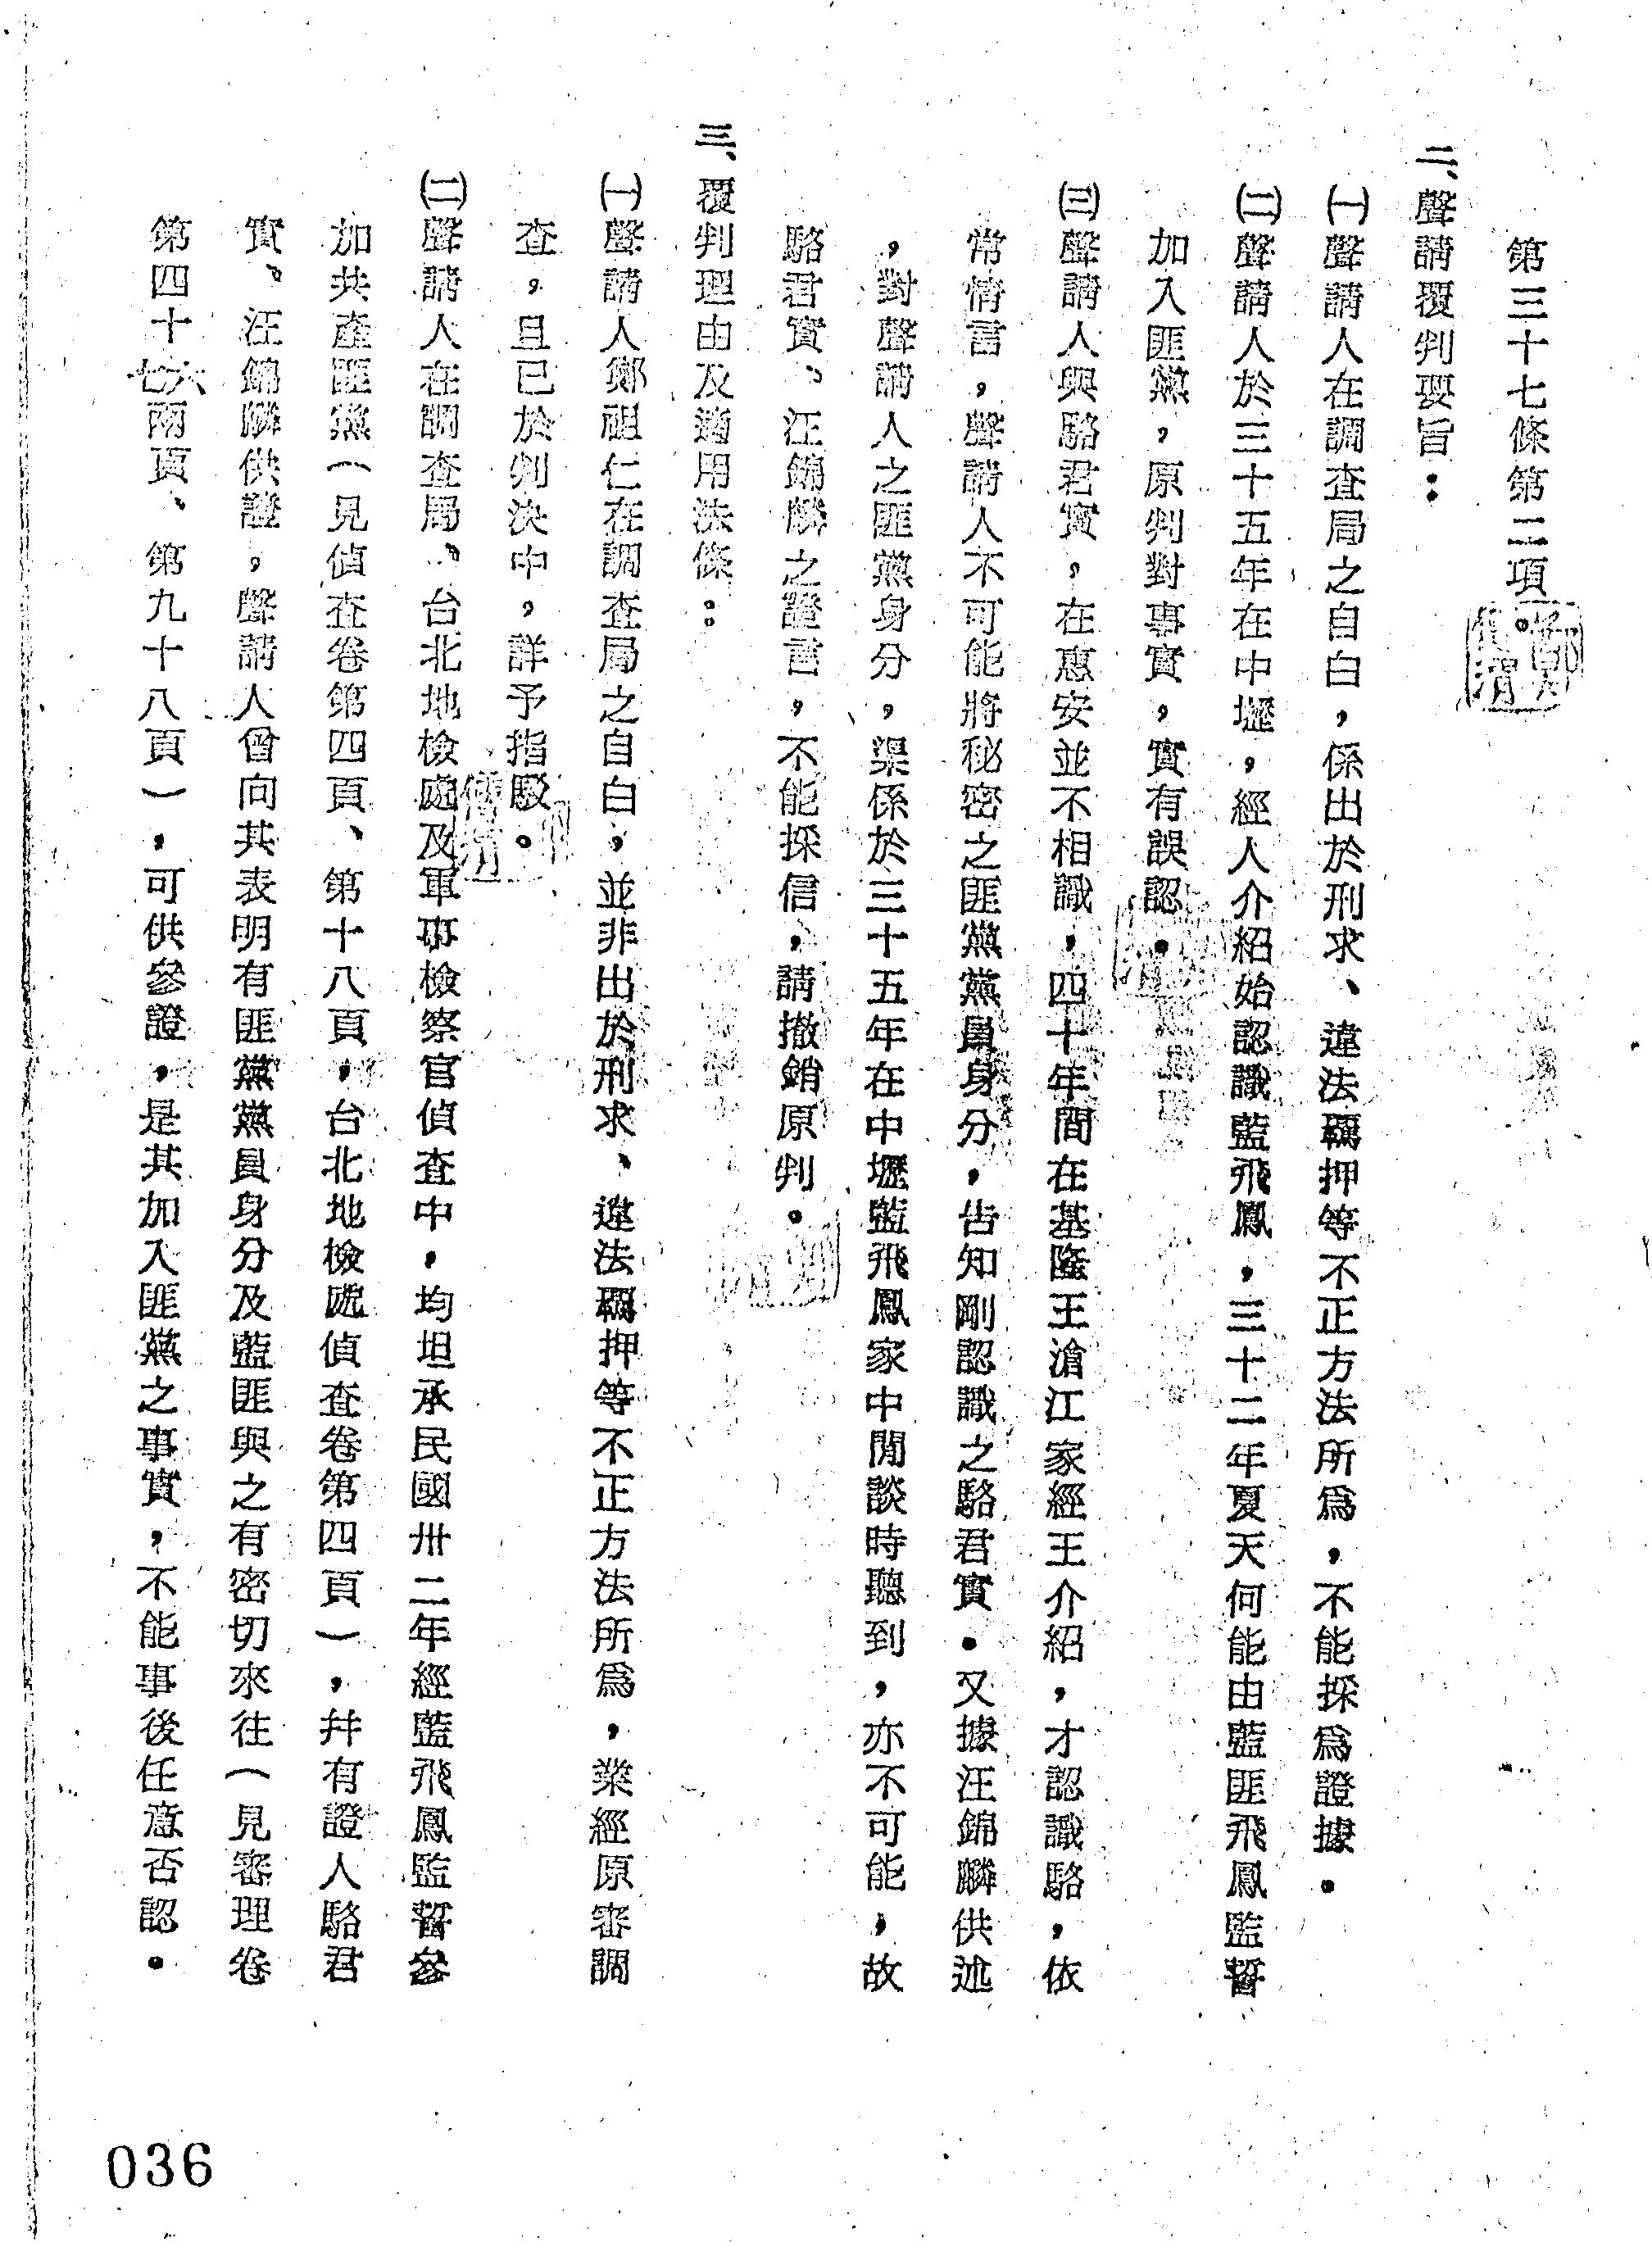 第三十七條第二項。
二、聲請覆判要旨：
㈠聲請人在調查局之自白，係出於刑求、違法羈押等不正方法所爲，不能採爲證據。
㈡聲請人於三十五年在中壢，經人介紹始認識藍飛鳳，三十二年夏天何能由藍匪飛鳳監誓
加入匪黨，原判對事實，實有誤認。
㈢聲請人與駱君實，在惠安並不相識，四十年間在基隆王滄江家經王介紹，才認識駱，依
常情言，聲請人不可能將秘密之匪黨黨員身分，告知剛認識之駱君實。又據汪錦麟供述
，對聲請人之匪黨身分，渠係於三十五年在中壢藍飛鳳家中閒談時聽到，亦不可能，故
駱君實、汪錦麟之證言，不能採信，請撤銷原判。
三、覆判理由及適用法條：
㈠聲請人鄭祖仁在調查局之自白，並非出於刑求、違法羈押等不正方法所爲，業經原審調
查，且已於判決中，詳予指駁。
㈡聲請人在調查局、台北地檢處及軍事檢察官偵查中，均坦承民國卅二年經藍飛鳳監誓參
加共產匪黨（見偵查卷第四頁、第十八頁，台北地檢處偵查卷第四頁），幷有證人駱君
實、汪錦麟供證，聲請人曾向其表明有匪黨黨員身分及藍匪與之有密切來往（見審理卷
第四十六七兩頁、第九十八頁），可供參證，是其加入匪黨之事實，不能事後任意否認。
036